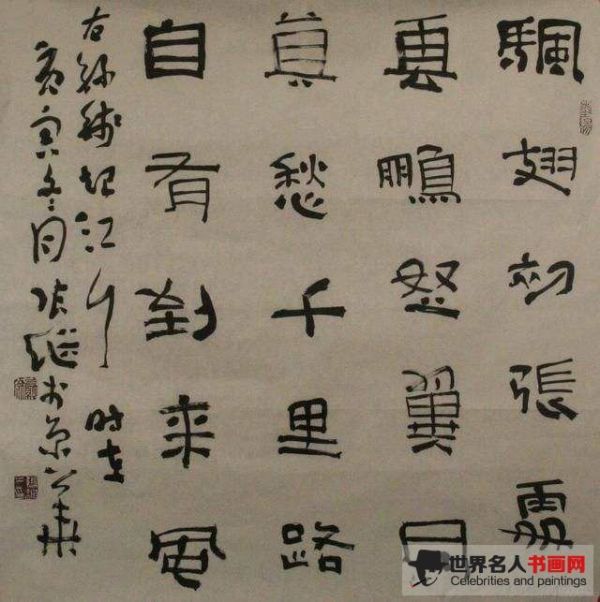 颿翅初張處
雲鵬怒翼同
莫愁千里路
自有到来風
右錄錢起江行 时在
庚寅冬月 張继於京華
世界名人书画网
Celebrities and paintings